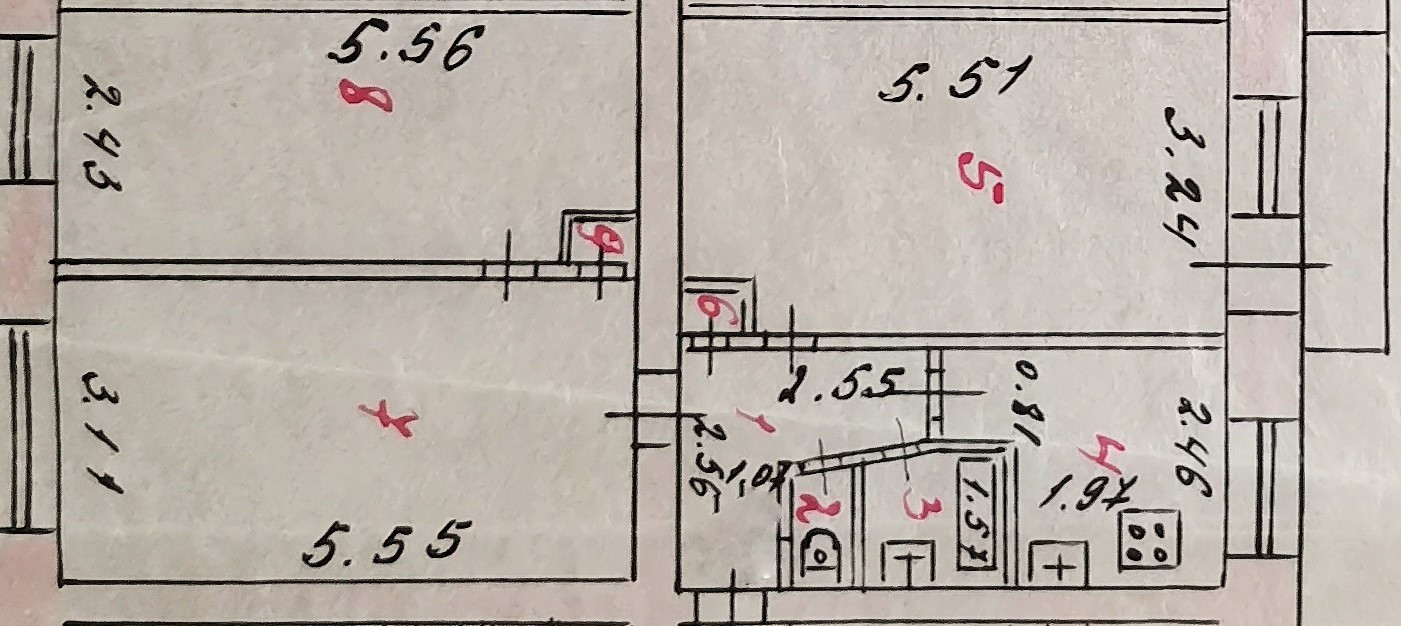 5.56
8
2.43
9
5.51
5
3.24
6
2.55
0.81
1
2.56
1.07
2
3
1.57
4
1.97
2.46
3.11
7
5.55